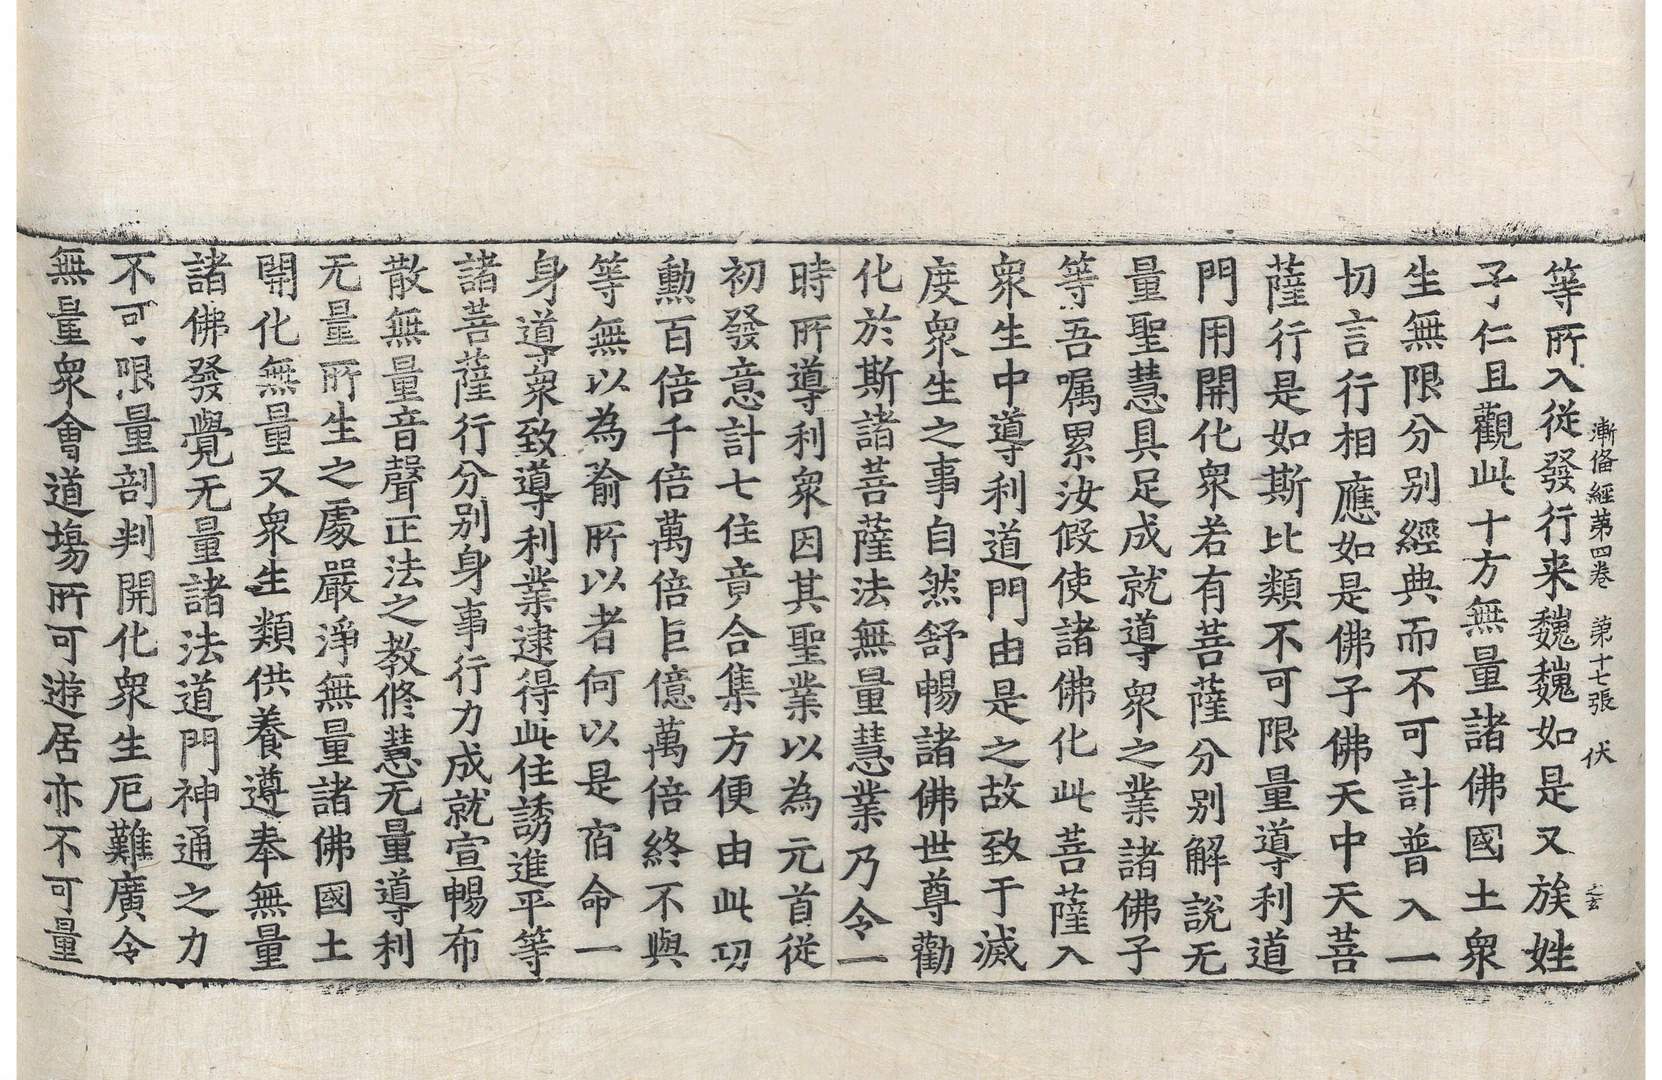 漸俻經苐四卷 苐十七張 伏
等所入従發行来巍巍如是又族姓
子仁且觀此十方無量諸佛國土衆
生無限分別經典而不可計普入一
切言行相應如是佛子佛天中天菩
薩行是如斯比類不可限量導利道
門用開化衆若有菩薩分別解說无
量聖慧具足成就導衆之業諸佛子
等吾嘱累汝假使諸佛化此菩薩入
衆生中導利道門由是之故致于滅
度衆生之事自然舒暢諸佛世尊勸
化於斯諸菩薩法無量慧業乃令一
時所導利衆因其聖業以為元首従
初發意計七住竟合集方便由此功
勳百倍千倍萬倍巨億萬倍終不與
等無以為喻所以者何以是宿命一
身導衆致導利業逮得此住誘進平等
諸菩薩行分別身事行力成就宣暢布
散無量音聲正法之教修慧无量導利
无量所生之處嚴淨無量諸佛國土
開化無量又衆生類供養遵奉無量
諸佛發覺无量諸法道門神通之力
不可限量剖判開化衆生厄難廣令
無量衆會道場所可遊居亦不可量